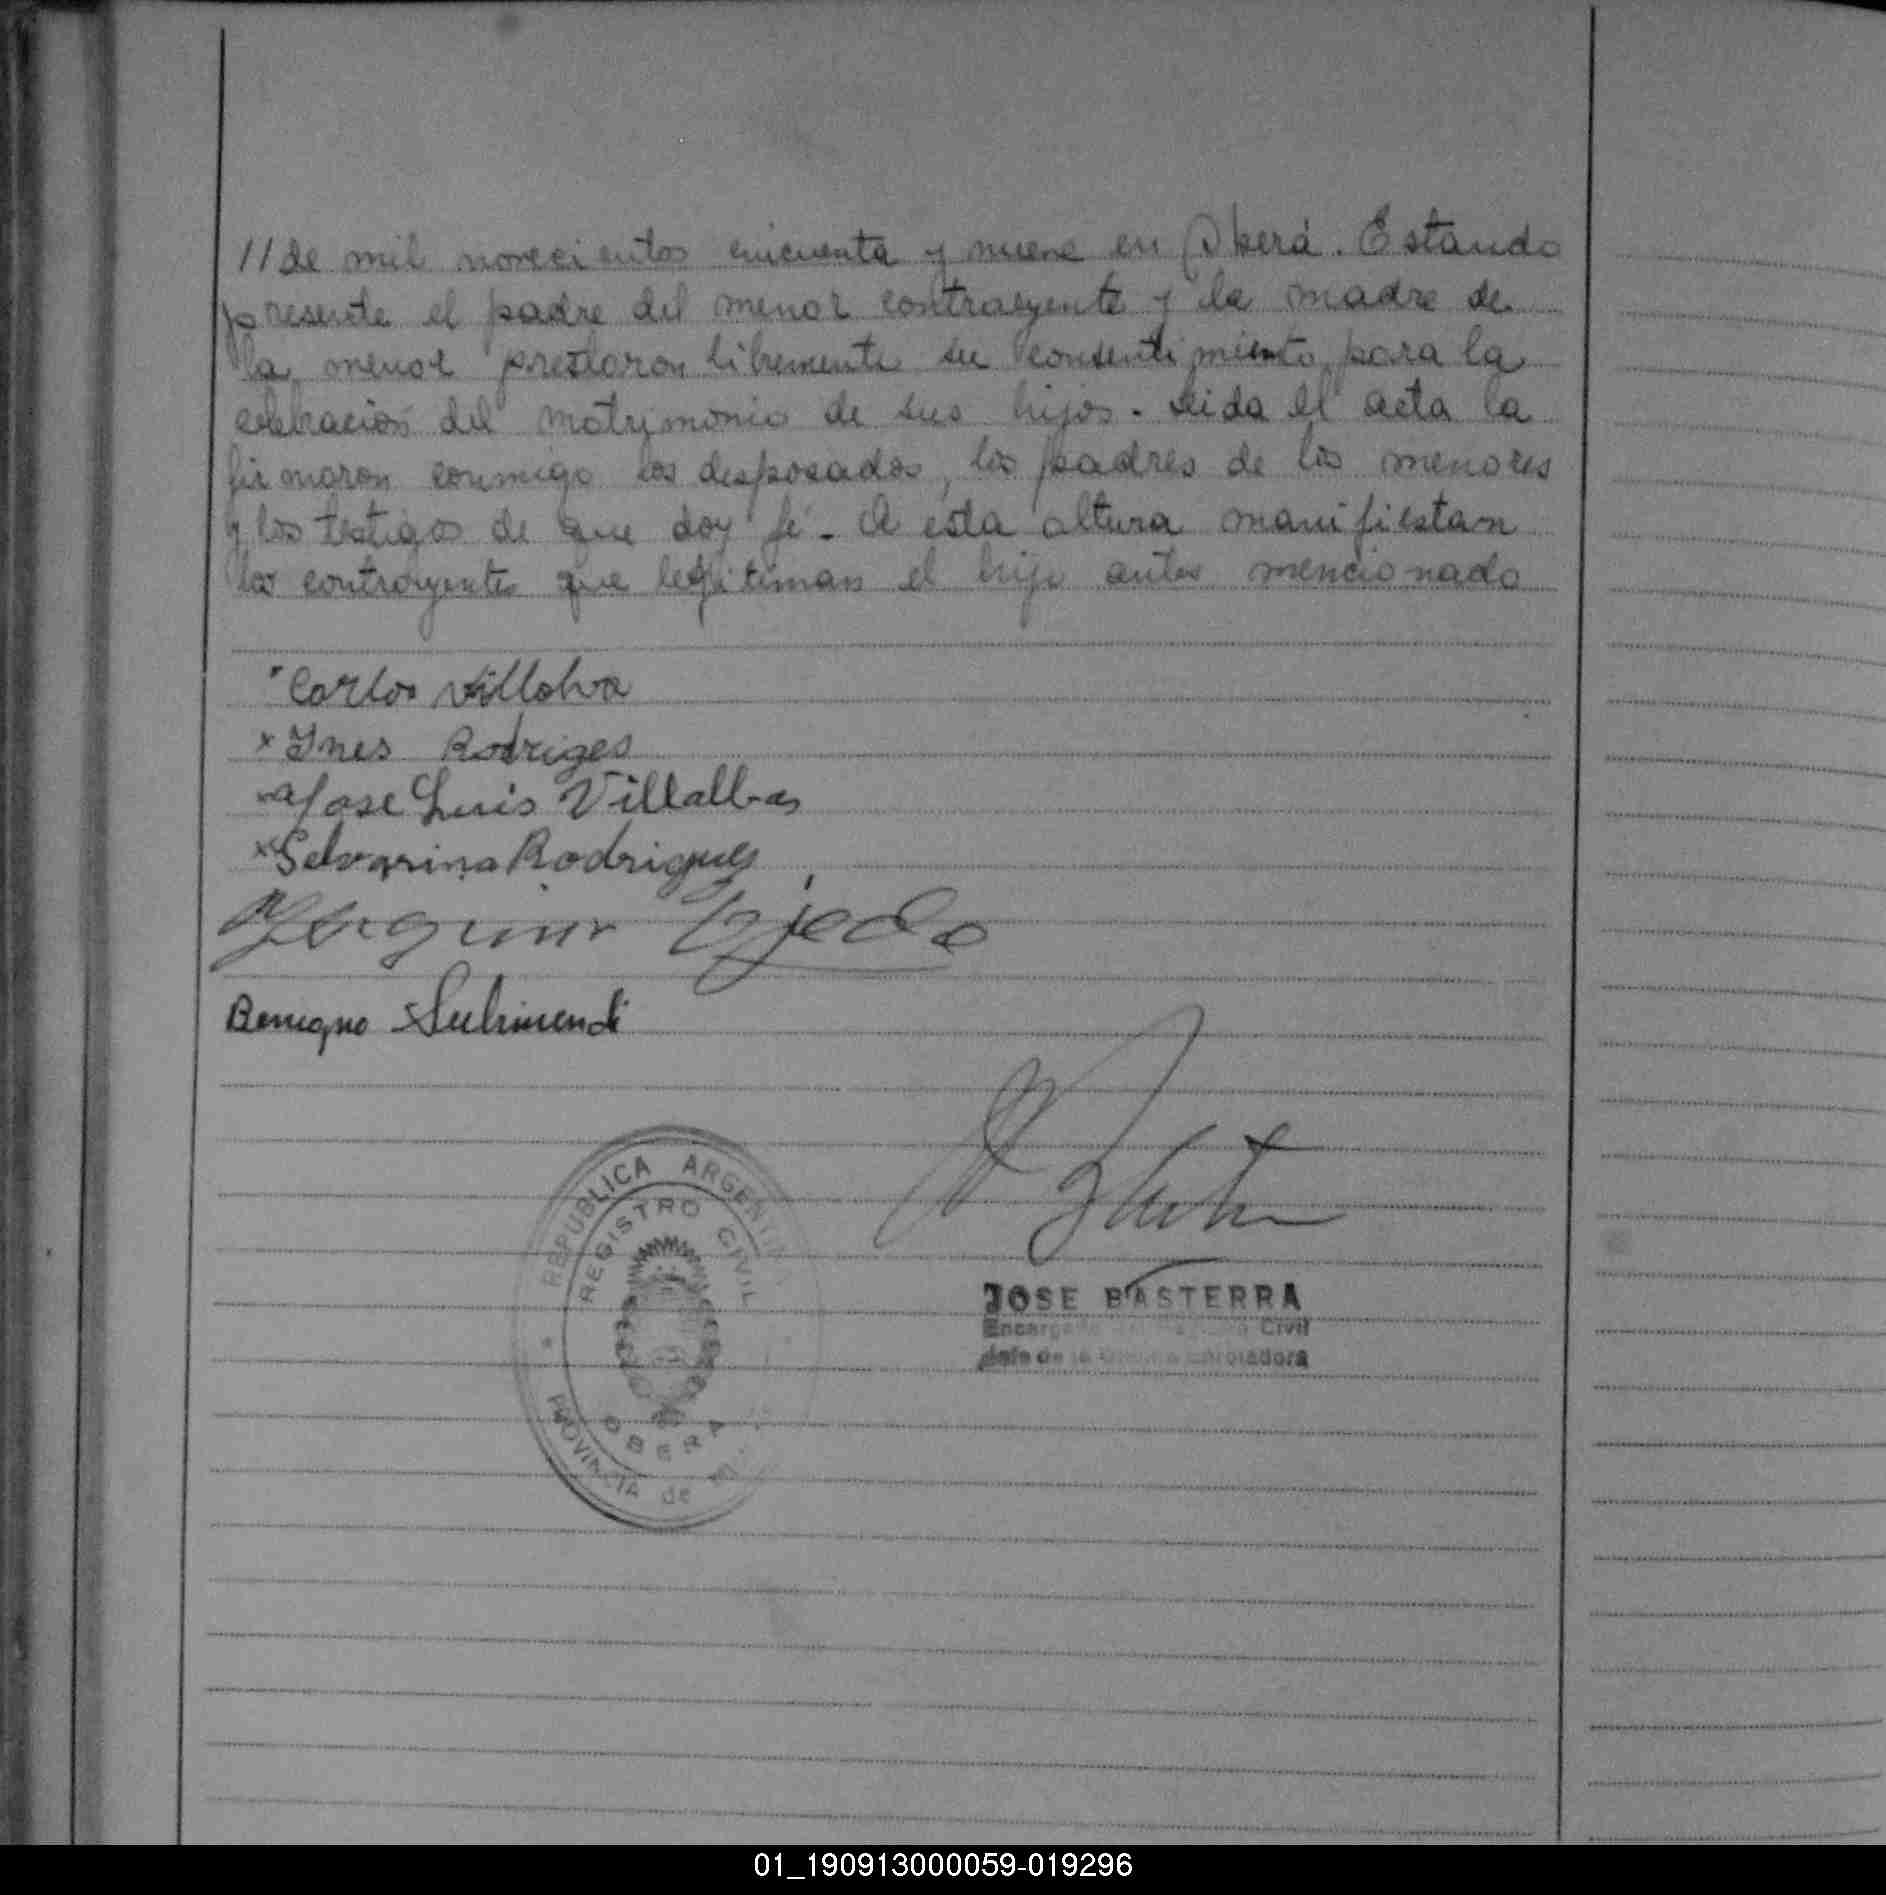 //de mil novecientos cincuenta y nueve en Oberá. Estando
presente el padre del menor contrayente y la madre de
la menor prestaron libremente su consentimiento para la
celebracion del matrimonio de sus hijos. Leida el acta la
firmaron conmigo los desposados, los padres de los menores
y los testigos de que doy fé. A esta altura manifiestan
los contrayentes que legitiman el hijo antes mencionado
Carlos Villalva
x Ines Rodriges
Jose Luis Villalba
x Selvarina Rodrigues
Ojeda
Benigno
REPUBLICA ARGENTINA
REGISTRO CIVIL
OBERA
PROVINCIA de
JOSE BASTERRA
Encargado del Registro Civil
Jefe de la Oficina Enroladora
01_190913000059-019296